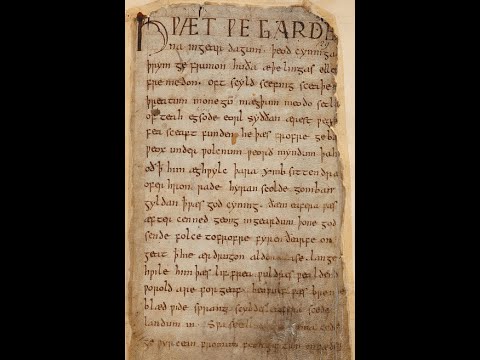 HǷÆT ǷE GARDE
na in gear dagum. þeod cyninga
þrym ge frunon huða æþelingas elle
fre medon. oft scyld scefing sceaþe
þreatum monegū mægþum meodo setla
of teah egsode eorl syððan ærest ƿear
fea sceaft funden he þæs frofre geba
ƿeox under ƿolcnum ƿeorð myndum þah
oð ꝥ him æghƿylc þara ymb sittendra
ofer hron rade hyran scolde gomban
gyldan ꝥ ƿæs god cyning. ðæm eafera ƿæs
æfter cenned geong in geardum þone god
sende folce tofrofre fyren ðearfe on
geat ꝥ hie ær drugon aldor ase. lange
hƿile him þæs lif frea ƿuldres ƿealdend
ƿorold are for geaf. beoƿulf ƿæs breme
blæd ƿide sprang scyldes eafera scede
landum in. Sƿa sceal uma gode
ge ƿyrcean fromum feoh giftum